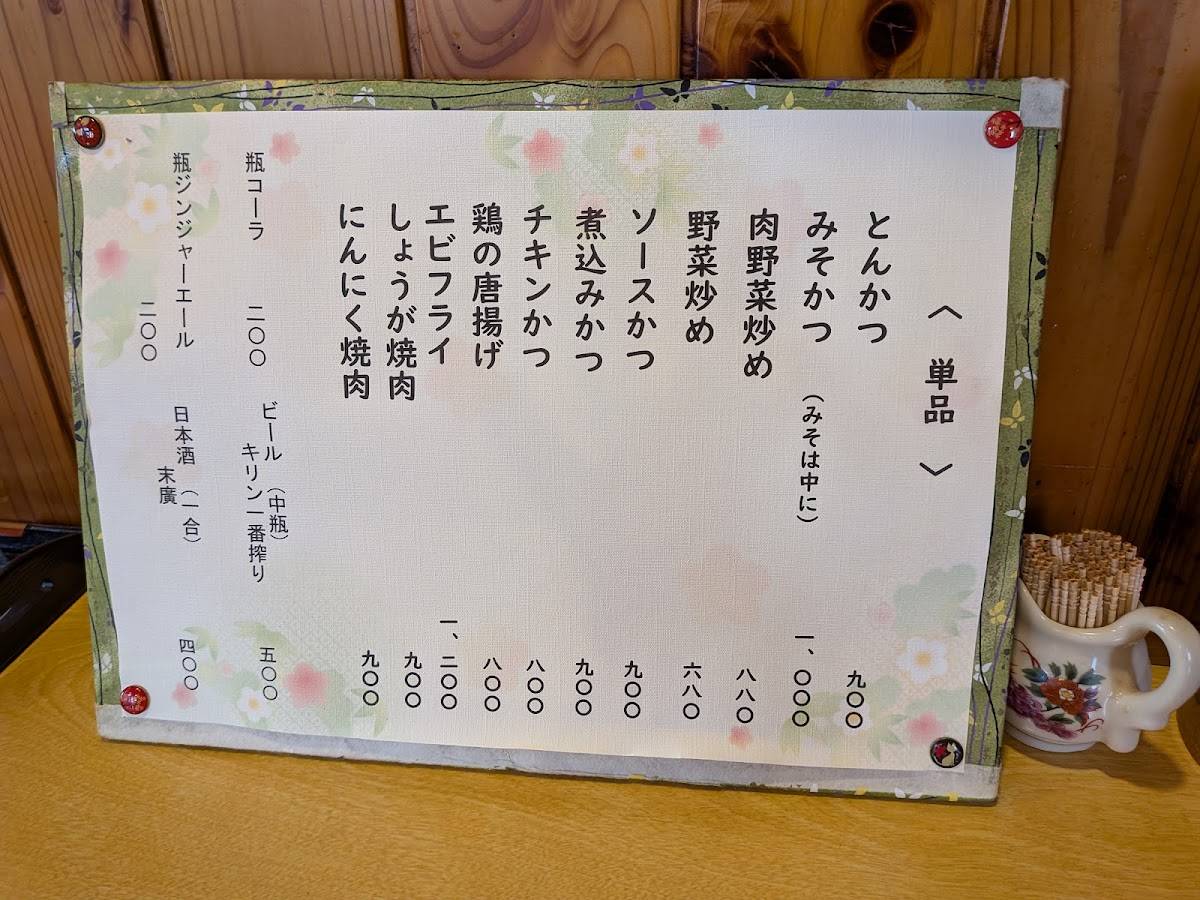 〈 単品 〉
とんかつ 九〇〇
みそかつ (みそは中に) 一、〇〇〇
肉野菜炒め 八八〇
野菜炒め 六八〇
ソースかつ 九〇〇
煮込みかつ 九〇〇
チキンかつ 八〇〇
鶏の唐揚げ 八〇〇
エビフライ 一、二〇〇
しょうが焼肉 九〇〇
にんにく焼肉 九〇〇
瓶コーラ 二〇〇
瓶ジンジャーエール 二〇〇
ビール (中瓶) 五〇〇
キリン一番搾り
日本酒 (一合) 四〇〇
末廣